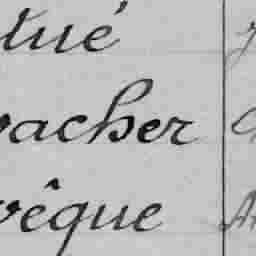 tué
vacher
vêque